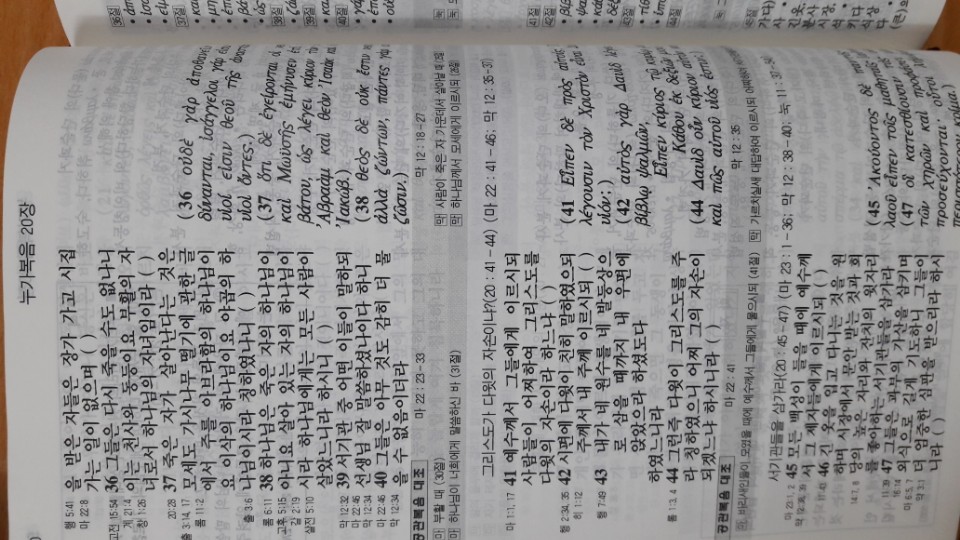 누가복음 20장
행 5:41
마 22:8
을 받은 자들은 장가 가고 시집
가는 일이 없으며 ( )
고전 15:54
계 21:4
창 1:26
36 그들은 다시 죽을 수도 없나니
이는 천사와 동등이요 부활의 자
녀로서 하나님의 자녀임이라 ( )
20:28
출 3:14, 17
롬 11:2
출 3:6
37 죽은 자가 살아난다는 것은
모세도 가시나무 떨기에 관한 글
에서 주를 아브라함의 하나님이
요 이삭의 하나님이요 야곱의 하
나님이시라 칭하였나니 ( )
롬 6:11
고후 5:15
갈 2:19
살전 5:10
38 하나님은 죽은 자의 하나님이
아니요 살아 있는 자의 하나님이
시라 하나님에게는 모든 사람이
살았느니라 하시니 ( )
막 12:32
마 22:46
막 12:34
39 서기관 중 어떤 이들이 말하되
선생님 잘 말씀하셨나이다 하니
마 22:46
막 12:34
40 그들은 아무 것도 감히 더 물
을 수 없음이더라
(36 οὐδὲ γὰρ ἀποθανεῖν
δύνανται, ἰσάγγελοι γάρ
υἱοί εἰσιν θεοῦ τῆς
υἱοὶ ὄντες.)
(37 ὅτι δὲ ἐγείρονται οἱ
καὶ Μωϋσῆς ἐμήνυσεν
βάτου, ὡς λέγει κύριον τὸν
Ἀβραὰμ καὶ θεὸν Ἰσαὰκ
Ἰακώβ.)
(38 θεὸς δὲ οὐκ ἔστιν
ἀλλὰ ζώντων, πάντες γὰρ
ζῶσιν.)
공관복음 대조 마 22:23-33 막 12:18-27
마 부활 때 (30절) 막 사람이 죽은 자 가운데서 살아날 때
마 하나님이 너희에게 말씀하신 바 (31절) 막 하나님께서 모세에게 이르시되 (26절)
그리스도가 다윗의 자손이냐?(20:41-44) (마 22:41-46; 막 12:35-37)
마 1:1, 17
41 예수께서 그들에게 이르시되
사람들이 어찌하여 그리스도를
다윗의 자손이라 하느냐 ( )
행 2:34, 35
히 1:12
42 시편에 다윗이 친히 말하였으되
주께서 내 주께 이르시되 ( )
행 7:49
43 내가 네 원수를 네 발등상으
로 삼을 때까지 내 우편에
앉았으라 하셨도다
하였느니라
롬 1:3, 4
44 그런즉 다윗이 그리스도를 주
라 칭하였으니 어찌 그의 자손이
되겠느냐 하시니라 ( )
(41 Εἶπεν δὲ πρὸς αὐτούς,
λέγουσιν τὸν Χριστὸν εἶναι
υἱόν;)
(42 αὐτὸς γὰρ Δαυὶδ
βίβλῳ ψαλμῶν,
Εἶπεν κύριος τῷ
Κάθου ἐκ δεξιῶν
(44 Δαυὶδ οὖν κύριον
καὶ πῶς αὐτοῦ υἱός ἐστιν;)
공관복음 대조 마 22:41 막 12:35
마 바리새인들이 모였을 때에 예수께서 그들에게 물으시되 (41절) 막 가르치실새 대답하여 이르시되 어찌하여
서기관들을 삼가라(20:45-47) (마 23:1-36; 막 12:38-40; 눅 11:37-54)
마 23:1, 2
막 12:38, 39
45 모든 백성이 들을 때에 예수께
서 그 제자들에게 이르시되 ( )
11:43
14:7, 8
46 긴 옷을 입고 다니는 것을 원
하며 시장에서 문안 받는 것과 회
당의 높은 자리와 잔치의 윗자리
를 좋아하는 서기관들을 삼가라
11:39
16:14
마 6:5, 7
약 3:1
47 그들은 과부의 가산을 삼키며
외식으로 길게 기도하니 그들이
더 엄중한 심판을 받으리라 하시
니라 ( )
(45 Ἀκούοντος δὲ παντὸς
λαοῦ εἶπεν τοῖς μαθηταῖς
(47 οἳ κατεσθίουσιν
τῶν χηρῶν καὶ προφάσει
προσεύχονται· οὗτοι
περισσότερον κρίμα.)